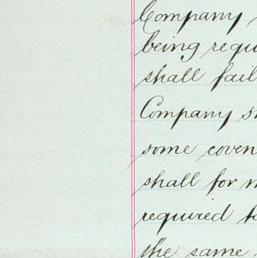 Company
being requi
shall fail
Company s
some coven
shall for
required t
the same